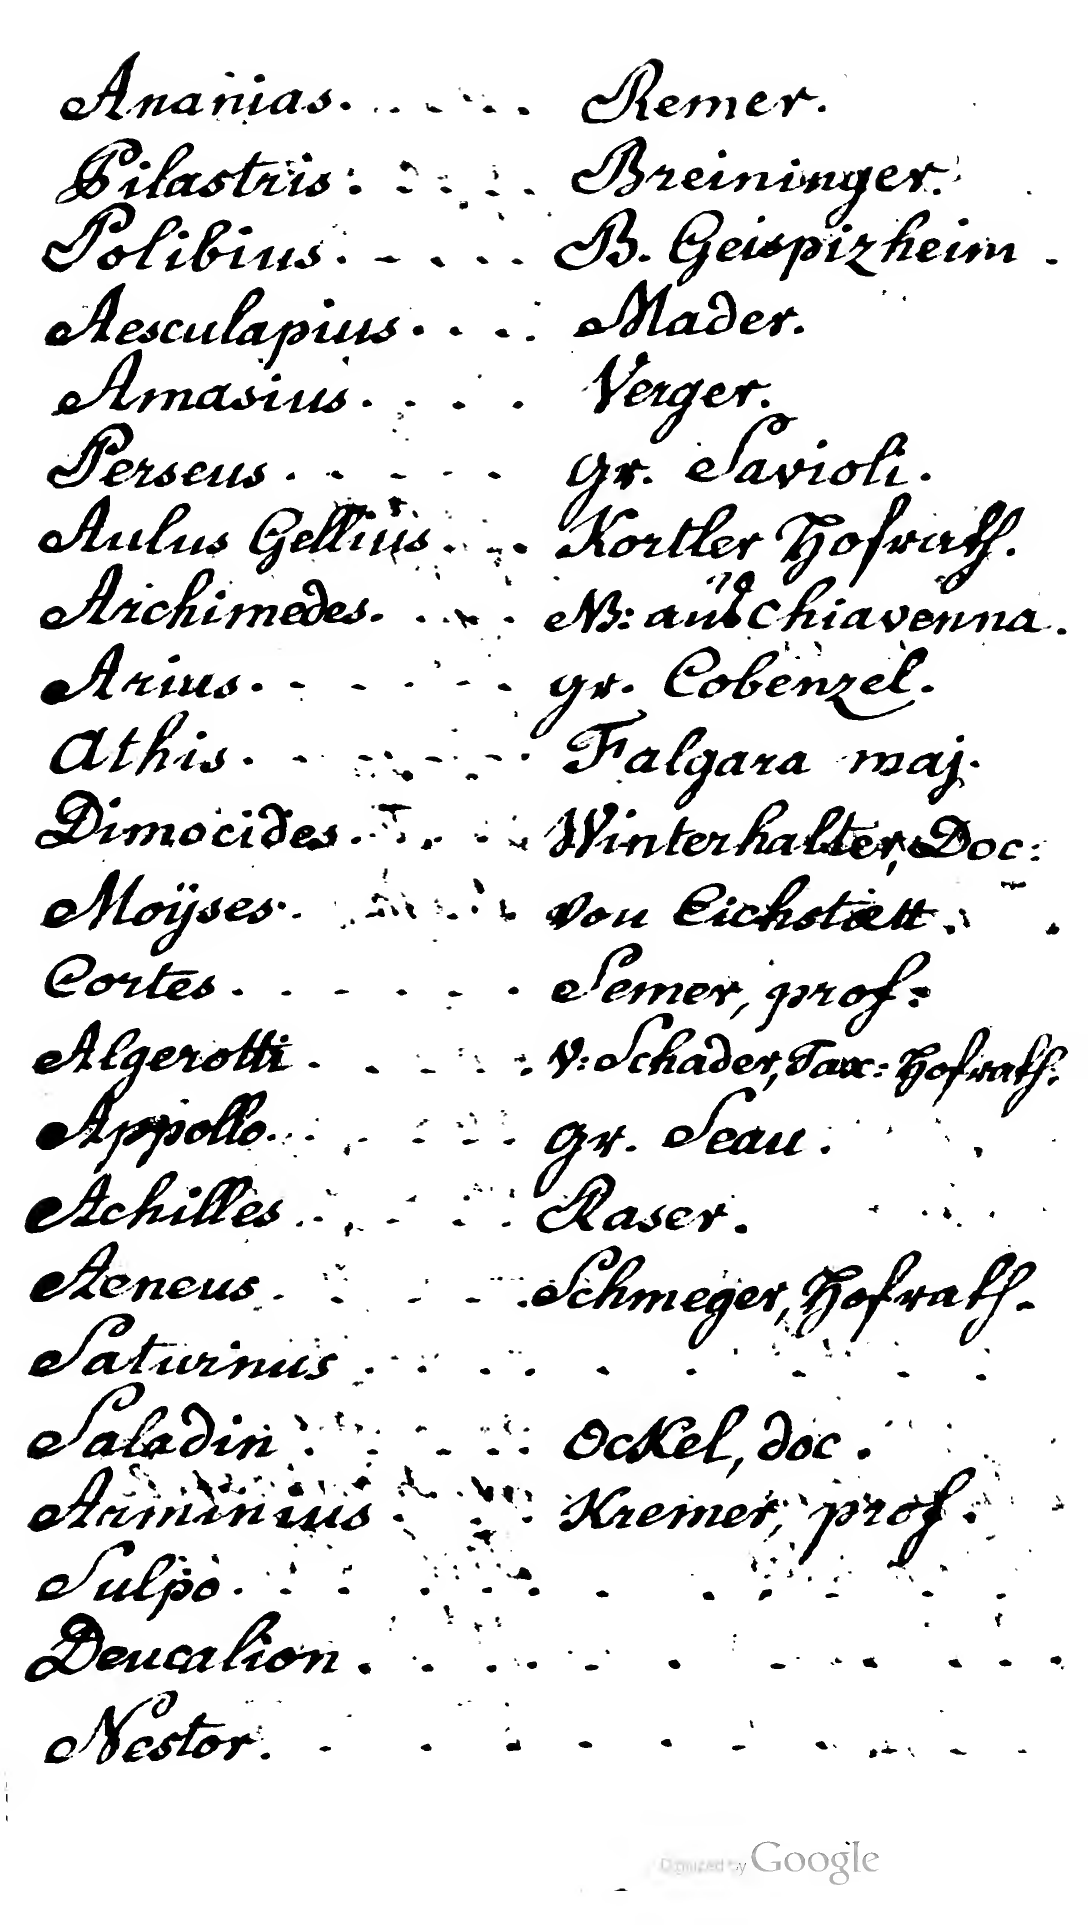 Ananias. . . . . . Remer.
Pilastris. . . . . Breininger.
Polibius. . . . . B. Geispizheim .
Aesculapius. . . . Mader.
Amasius. . . . Verger.
Perseus. . . . . gr. Savioli.
Aulus Gellius. . . Kortler Hofrath.
Archimedes. . . . NB: aus Chiavenna.
Arius. . . . . . gr. Cobenzel.
Athis. . . . . . Falgara maj.
Dimocides. . . . Winterhalter, Doc:
Moÿses. . . . von Eichstaett.
Cortes. . . . . . Semer, prof:
Algerotti. . . . . V: Schader, Tax: Hofrath.
Appollo. . . . . gr. Seau.
Achilles. . . . . Raser.
Aeneus. . . . . Schmeger, Hofrath.
Saturnus . . . . . . . . .
Saladin . . . . Ockel, doc.
Arminius . . . Kremer, prof.
Sulpo. . . . . . . . . .
Deucalion. . . . . . . . . .
Nestor. . . . . . . . . .
Digitized by Google